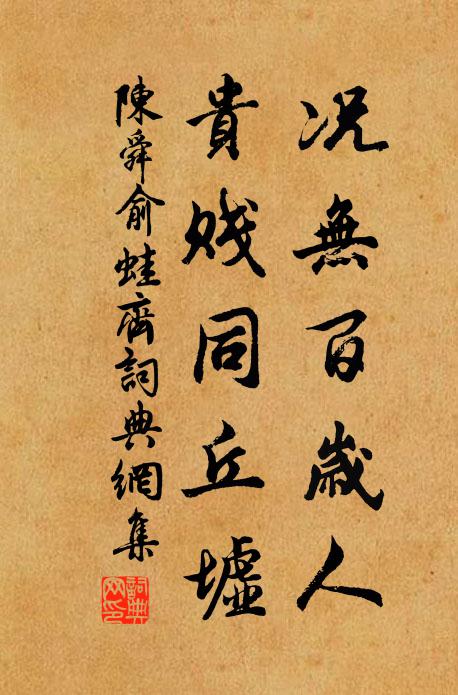 况無百歲人
貴賤同丘墟
陳舜俞蛙齋詞典網集
詞典
网印